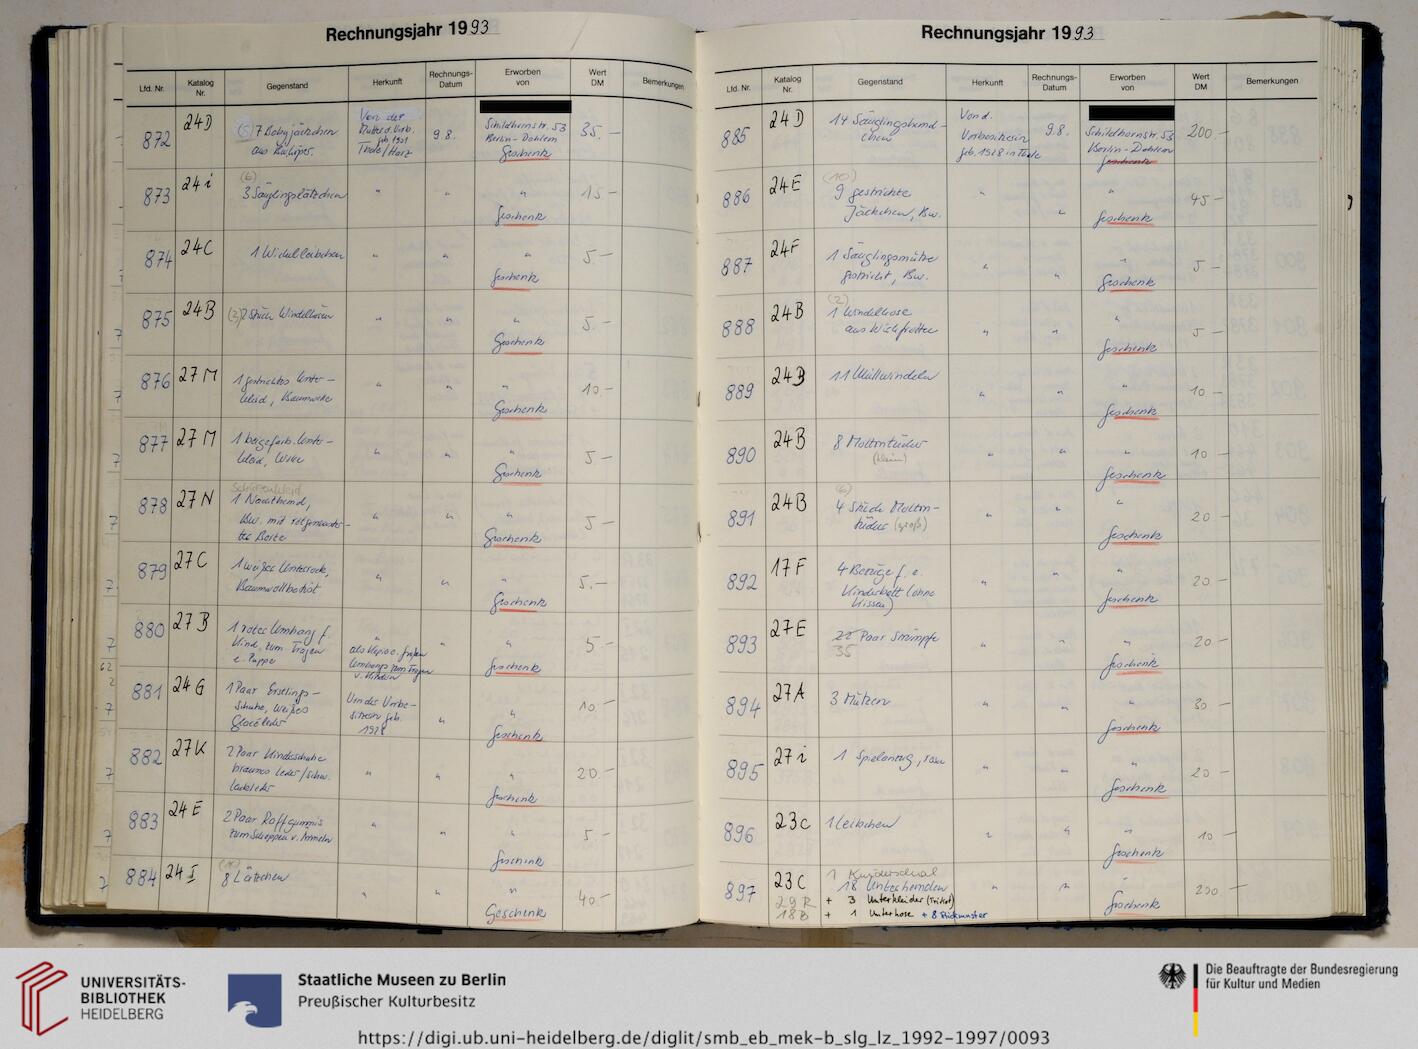 Rechnungsjahr 1993
Lfd. Nr. Katalog Nr. Gegenstand Herkunft Rechnungs-Datum Erworben von Wert DM Bemerkungen
872 24D (5) 7 Babyjäckchen Von der Schildhornstr. 53 35.-
Mutter d. Vorb. 9.8. Berlin-Dahlem
geb. 1901
Thale/Harz Geschenk
873 24i (6) 3 Säuglingslätzchen " " " 15-
Geschenk
874 24C 1 Wickelleibchen " " " 5-
Geschenk
875 24B (2) 2 Stück Windelhosen " " " 5.-
Geschenk
876 27M 1 gestricktes Unter- " " " 10.-
kleid, Baumwolle Geschenk
877 27M 1 beigefarb. Unter- " " " 5-
kleid, Geschenk
878 27N 1 Nachthemd, " " " 5-
Bw. mit
ter Borte Geschenk
879 27C 1 weißer Unterrock, " " " 5.-
Baumwollbatist Geschenk
880 27B 1 roter Umhang f. " " " 5-
Kind, zum Tragen als Kopie e. großen
e. Puppe Umhangs zum Tragen Geschenk
v. Kindern
881 24G 1 Paar Erstlings- Von der Vorbe- " " 10-
schuhe, weißes sitzerin geb.
Glacéleder 1928 Geschenk
882 27K 2 Paar Kinderschuhe " " " 20-
braunes Leder/schw.
Lackleder Geschenk
883 24E 2 Paar Raffgummis " " " 5-
zum v. Ärmeln Geschenk
884 24I 8 Lätzchen " " " 40.-
Geschenk
Rechnungsjahr 1993
Lfd. Nr. Katalog Nr. Gegenstand Herkunft Rechnungs-Datum Erworben von Wert DM Bemerkungen
885 24D 14 Säuglingshemd- Von d. 9.8. Schildhornstr. 53 200.-
chen Vorbesitzerin Berlin-Dahlem
geb. 1928 in Thale Geschenk
886 24E (10) 9 gestrickte " " " 45-
Jäckchen, Bw. Geschenk
887 24F 1 Säuglingsmütze " " " 5-
gestrickt, Bw. Geschenk
888 24B (2) 1 Windelhose " " " 5-
aus Geschenk
889 24B 11 Mullwindeln " " " 10-
Geschenk
890 24B 8 Moltontücher " " " 10-
(klein) Geschenk
891 24B (6) 4 Stück Molton- " " " 20-
tücher (groß) Geschenk
892 17F 4 Bezüge f. e. " " " 20-
Kinderbett (ohne
Kissen) Geschenk
893 27E 22 Paar Strümpfe " " " 20-
35 Geschenk
894 27A 3 Mützen " " " 30-
Geschenk
895 27i 1 Spielanzug, rosa " " " 20-
Geschenk
896 23c 1 Leibchen " " " 10-
Geschenk
897 23C 1
18 Unterhemden " " " 200-
29R + 3 Unterkleider (Trikot) Geschenk
18B + 1 Unterhose + 8 Stickmuster
UNIVERSITÄTS-
BIBLIOTHEK
HEIDELBERG
Staatliche Museen zu Berlin
Preußischer Kulturbesitz
Die Beauftragte der Bundesregierung
für Kultur und Medien
https://digi.ub.uni-heidelberg.de/diglit/smb_eb_mek-b_slg_lz_1992-1997/0093